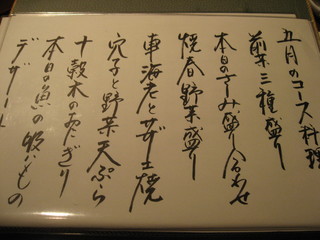 五月のコース料理
前菜三種盛り
本日のさしみ盛り合わせ
焼春野菜盛り
車海老とサザエ焼
穴子と野菜天ぷら
十穀米のおにぎり
本日の魚の吸いもの
デザート